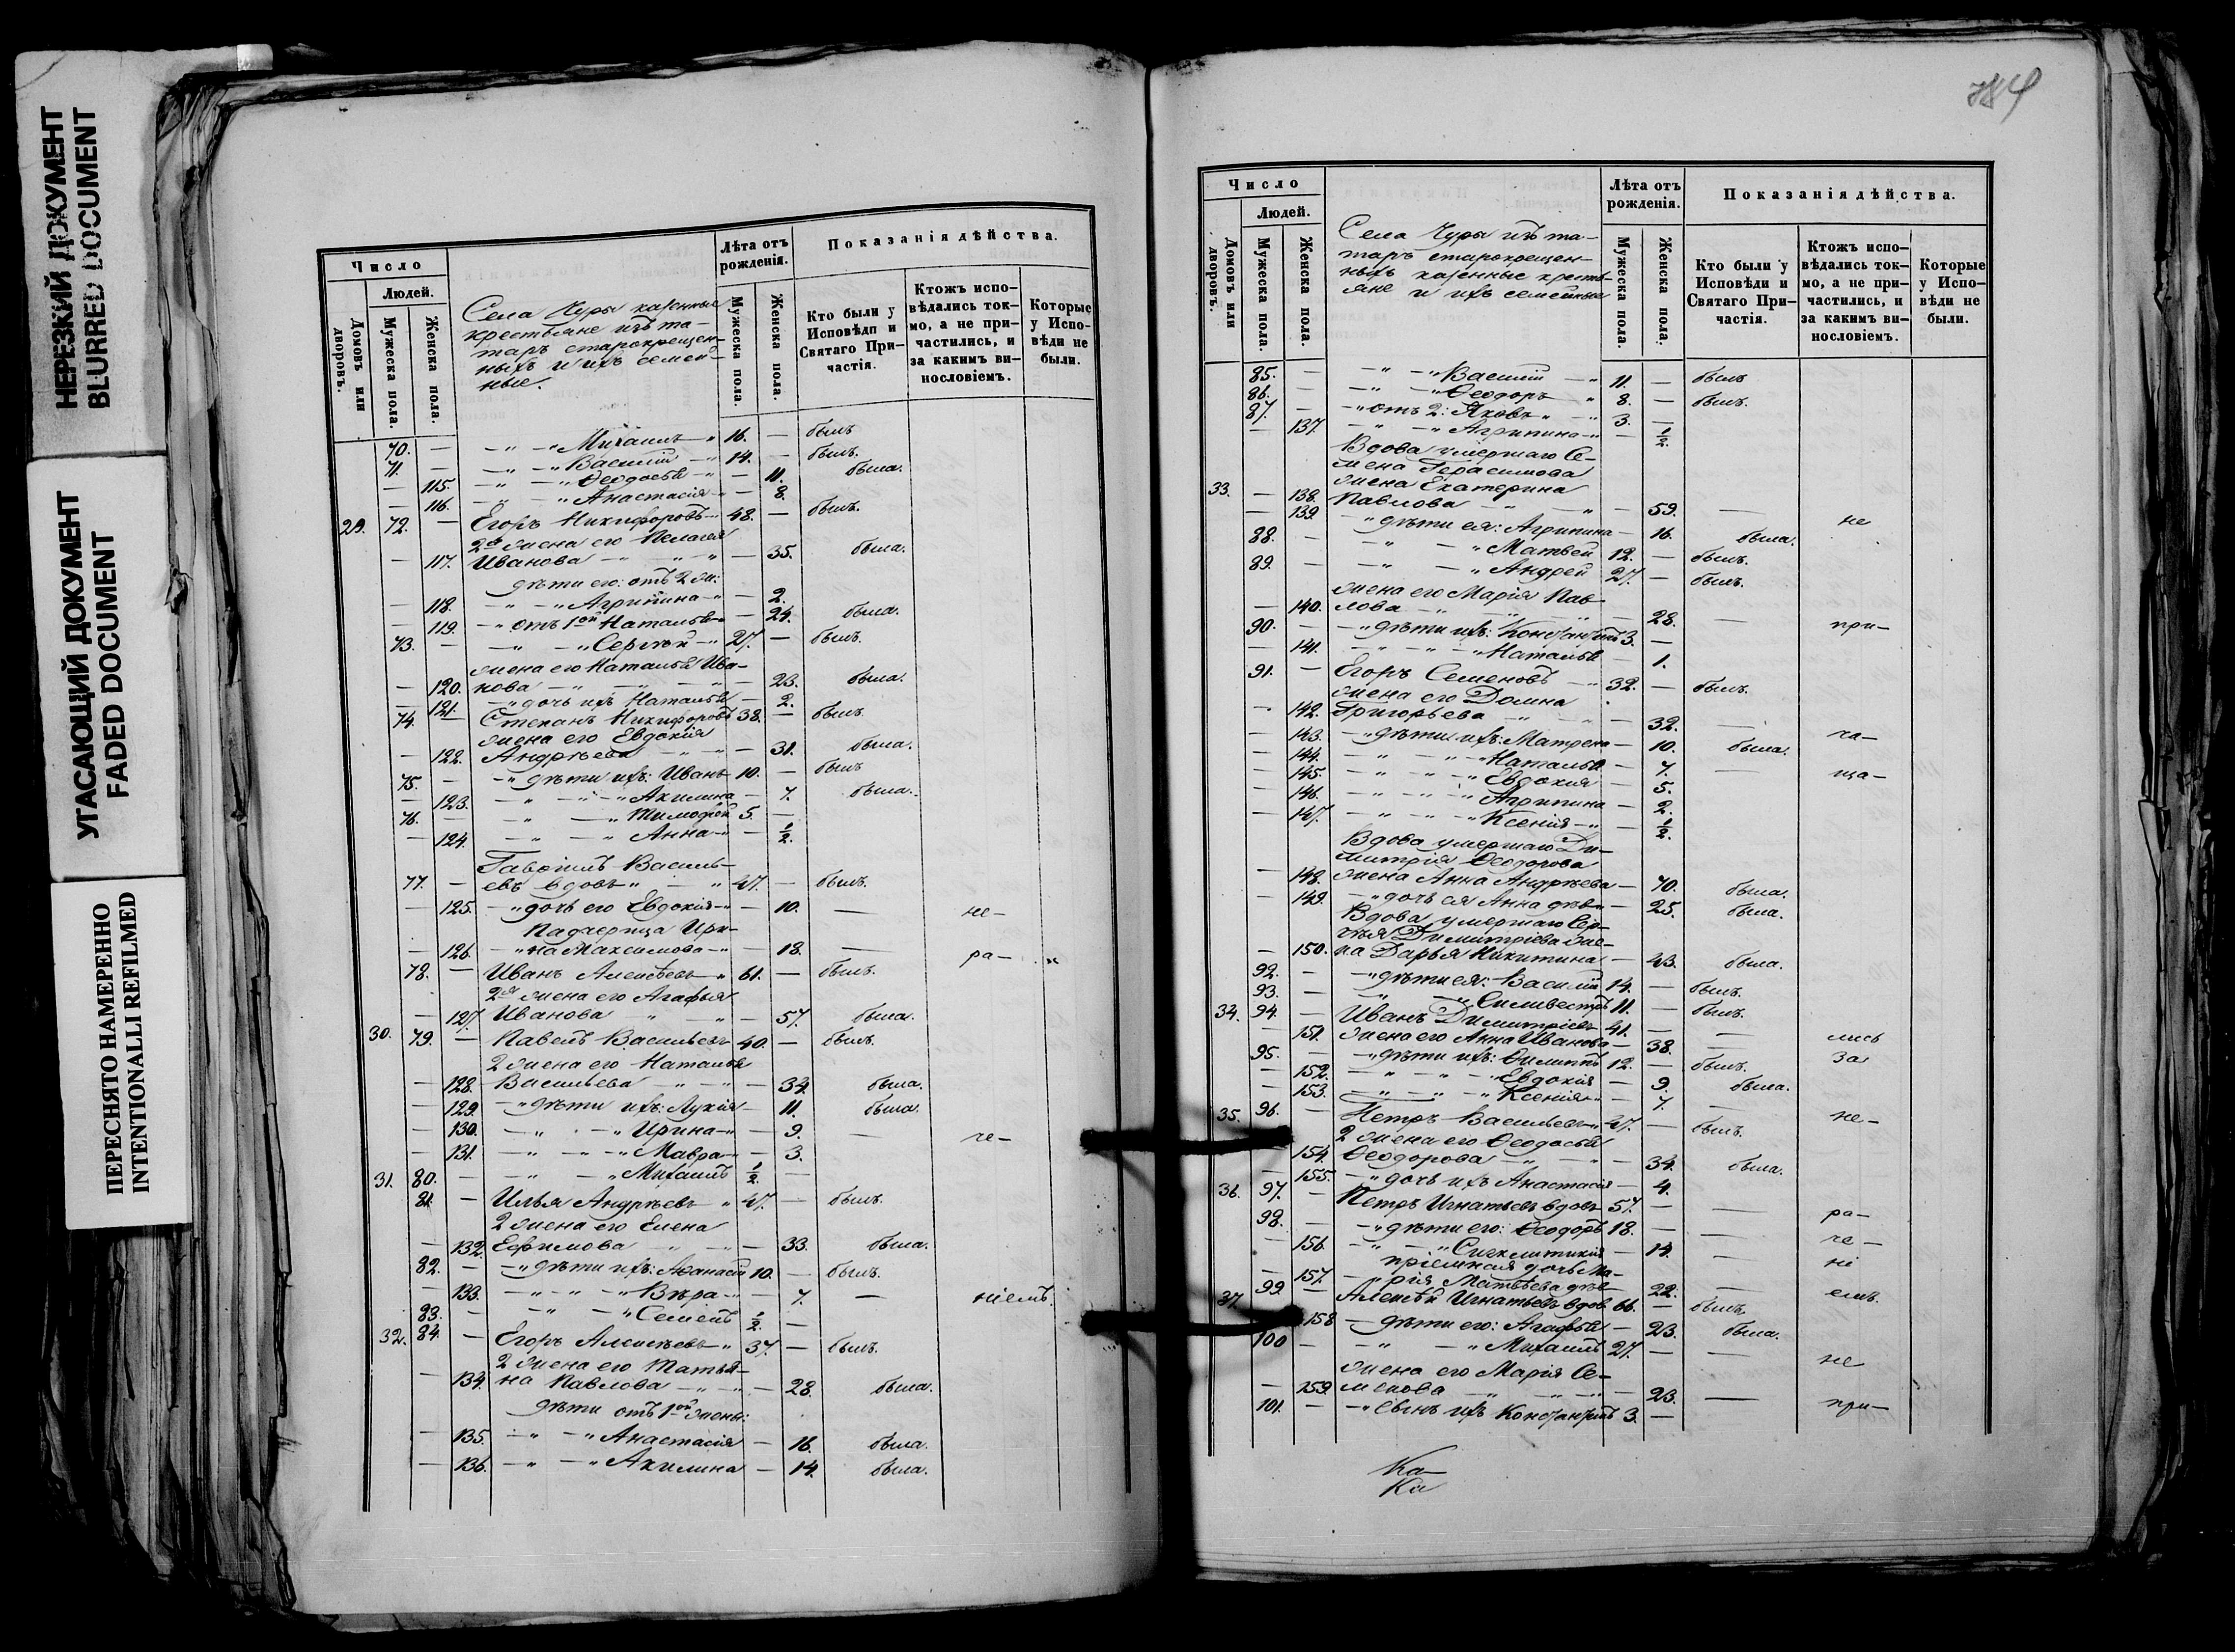 НЕРЕЗКИЙ ДОКУМЕНТ
BLURRED DOCUMENT
УГАСАЮЩИЙ ДОКУМЕНТ
FADED DOCUMENT
ПЕРЕСНЯТО НАМЕРЕННО
INTENTIONALI REFILMED
Число
Людей.
Домовъ или дворовъ.
Мужеска пола.
Женска пола.
Села Чуры казенные
крестьяне изъ та-
таръ старокрещен-
ныхъ и ихъ семей-
ные.
Лѣта отъ рожденія.
Мужеска пола.
Женска пола.
Показанія дѣйства.
Кто были у Исповѣди и Святаго Причастія.
Ктожъ испо-
вѣдались ток-
мо, а не при-
частились, и
за какимъ ви-
нословіемъ.
Которые
у Испо-
вѣди не
были.
70. — — " — " Михаилъ — " 16. — былъ
71. — — " — " Василій — " 14. — былъ.
— 115. — " — " Ѳеодосья — " — 11. была.
— 116. — " — " Анастасія — " — 8.
29. 72. — Егоръ Никифоровъ — " 48. — былъ.
2я жена его Пелагея
— 117. Иванова — " — " — " — 35. была.
дѣти его: отъ 2 ж:
— 118. — " — " Агрипина — " — 2.
— 119. — " отъ 1ой Наталья — 24. была.
73. — — " — " Сергѣй — " 27. — былъ.
жена его Наталья Ива-
— 120. нова — " — " — " — 23. была.
— 121. — " дочь ихъ Наталья — 2.
74. — Степанъ Никифоровъ 38. — былъ
жена его Евдокія
— 122. Андрѣева — " — " — 31. была.
75. — — " дѣти ихъ: Иванъ 10. — былъ
— 123. — " — " — " Акилина — 7. была.
76. — — " — " Тимофей 5. —
— 124. — " — " Анна — " — ½.
Гавріилъ Василь-
77. — евъ вдовъ " — " 47. — былъ.
— 125. — " дочь его Евдокія — " — 10. — не-
Падчерица Ири-
— 126. — " на Максимова — " — 18. — ра-
78. — Иванъ Алексѣевъ — " 61. — былъ.
2я жена его Агафья
— 127. Иванова — " — " — 57. была.
30. 79. — Павелъ Васильевъ 40. — былъ.
2 жена его Наталья
— 128. Васильева — " — " — 34. была.
— 129. — " дѣти ихъ: Лукія — 11. была.
— 130. — " — " Ирина — " — 9. — че-
— 131. — " — " — " Мавра — " — 3.
31. 80. — — " — " Михаилъ ½. —
81. — Илья Андрѣевъ — " 47. — былъ.
2 жена его Елена
— 132. Ефимова — " — " — 33. была.
82. — — " дѣти ихъ: Аѳанасій 10. — былъ.
— 133. — " — " — " Вѣра — " — 7. — ніемъ.
83. — — " — " Семенъ ½. —
32. 84. — Егоръ Алексѣевъ — " 37. — былъ.
2 жена его Татья-
— 134. на Павлова — " — " — 28. была.
дѣти отъ 1ой жены:
— 135. — " — " Анастасія — 16. была.
— 136. — " — " Акилина — 14. была.
Число
Людей.
Домовъ или дворовъ.
Мужеска пола.
Женска пола.
Села Чуры изъ та-
таръ старокрещен-
ныхъ казенные кресть-
яне и ихъ семейные
Лѣта отъ рожденія.
Мужеска пола.
Женска пола.
Показанія дѣйства.
Кто были у
Исповѣди и
Святаго При-
частія.
Ктожъ испо-
вѣдались ток-
мо, а не при-
частились, и
за какимъ ви-
нословіемъ.
Которые
у Испо-
вѣди не
были.
85. — — " — " Василій — " 11. — былъ
86. — — " — " Ѳеодоръ " 8. — былъ.
87. — — " отъ 2: Яковъ " — " 3. —
— 137. — " — " Агрипина — " — ½.
Вдова умершаго Се-
мена Герасимова
жена Екатерина
33. — 138. Павлова — " — " — 59. — не
— 139. — " дѣти ея: Агрипина — 16. была.
88. — — " — " Матвей 12. — былъ.
89. — — " — " Андрей 27. — былъ.
жена его Марія Пав-
— 140. лова — " — " — " — 28. — при-
90. — — " дѣти ихъ: Константинъ 3. —
— 141. — " — " — " Наталья — 1.
91. — Егоръ Семеновъ — " 32. — былъ.
жена его Домна
— 142. Григорьева — " — " — 32. —
— 143. — " дѣти ихъ: Матрена — 10. была. ча-
— 144. — " — " — " Наталья — 7. — ща-
— 145. — " — " — " Евдокія — 5.
— 146. — " — " — " Агрипина — 2.
— 147. — " — " — " Ксенія — " — ½.
Вдова умершаго Ди-
митрія Ѳеодорова
— 148. жена Анна Андрѣева — 70. была.
— 149. — " дочь ея Анна дѣв — 25. была.
Вдова умершаго Сер-
гѣя Димитріева же-
— 150. на Дарья Никитина — 43. была.
92. — — " дѣти ея: Василій 14. — былъ.
93. — — " — " Силивестръ 11. — былъ.
34. 94. — Иванъ Димитріевъ 41. — — лись
— 151. жена его Анна Иванова — 38. — за
95. — — " дѣти ихъ: Филиппъ 12. — былъ.
— 152. — " — " — " Евдокія — 9. была.
— 153. — " — " — " Ксенія — " — 7. — не-
35. 96. — Петръ Васильевъ — " 47. — былъ.
2 жена его Ѳеодосья
154. Ѳеодорова — " — " — 34. была.
— 155. — " дочь ихъ Анастасія — 4.
36. 97. — Петръ Игнатьевъ вдовъ 57. — — ра-
98. — — " дѣти его: Ѳеодоръ 18. — — че-
— 156. — " — " Сигклитикія — 14. — ні
пріемная дочь Ма-
— 157. — " рія Матвѣева дѣв — 22. — емъ.
37. 99. — Алексѣй Игнатьевъ вдов. 66. — былъ.
158 — дѣти его: Агафья — 23. была.
100 — — " — " Михаилъ 27. — — не
жена его Марія Се-
— 159. менова — " — " — " — 23. — при-
101. — — " сынъ ихъ Константинъ 3. —
Ка-
Ка